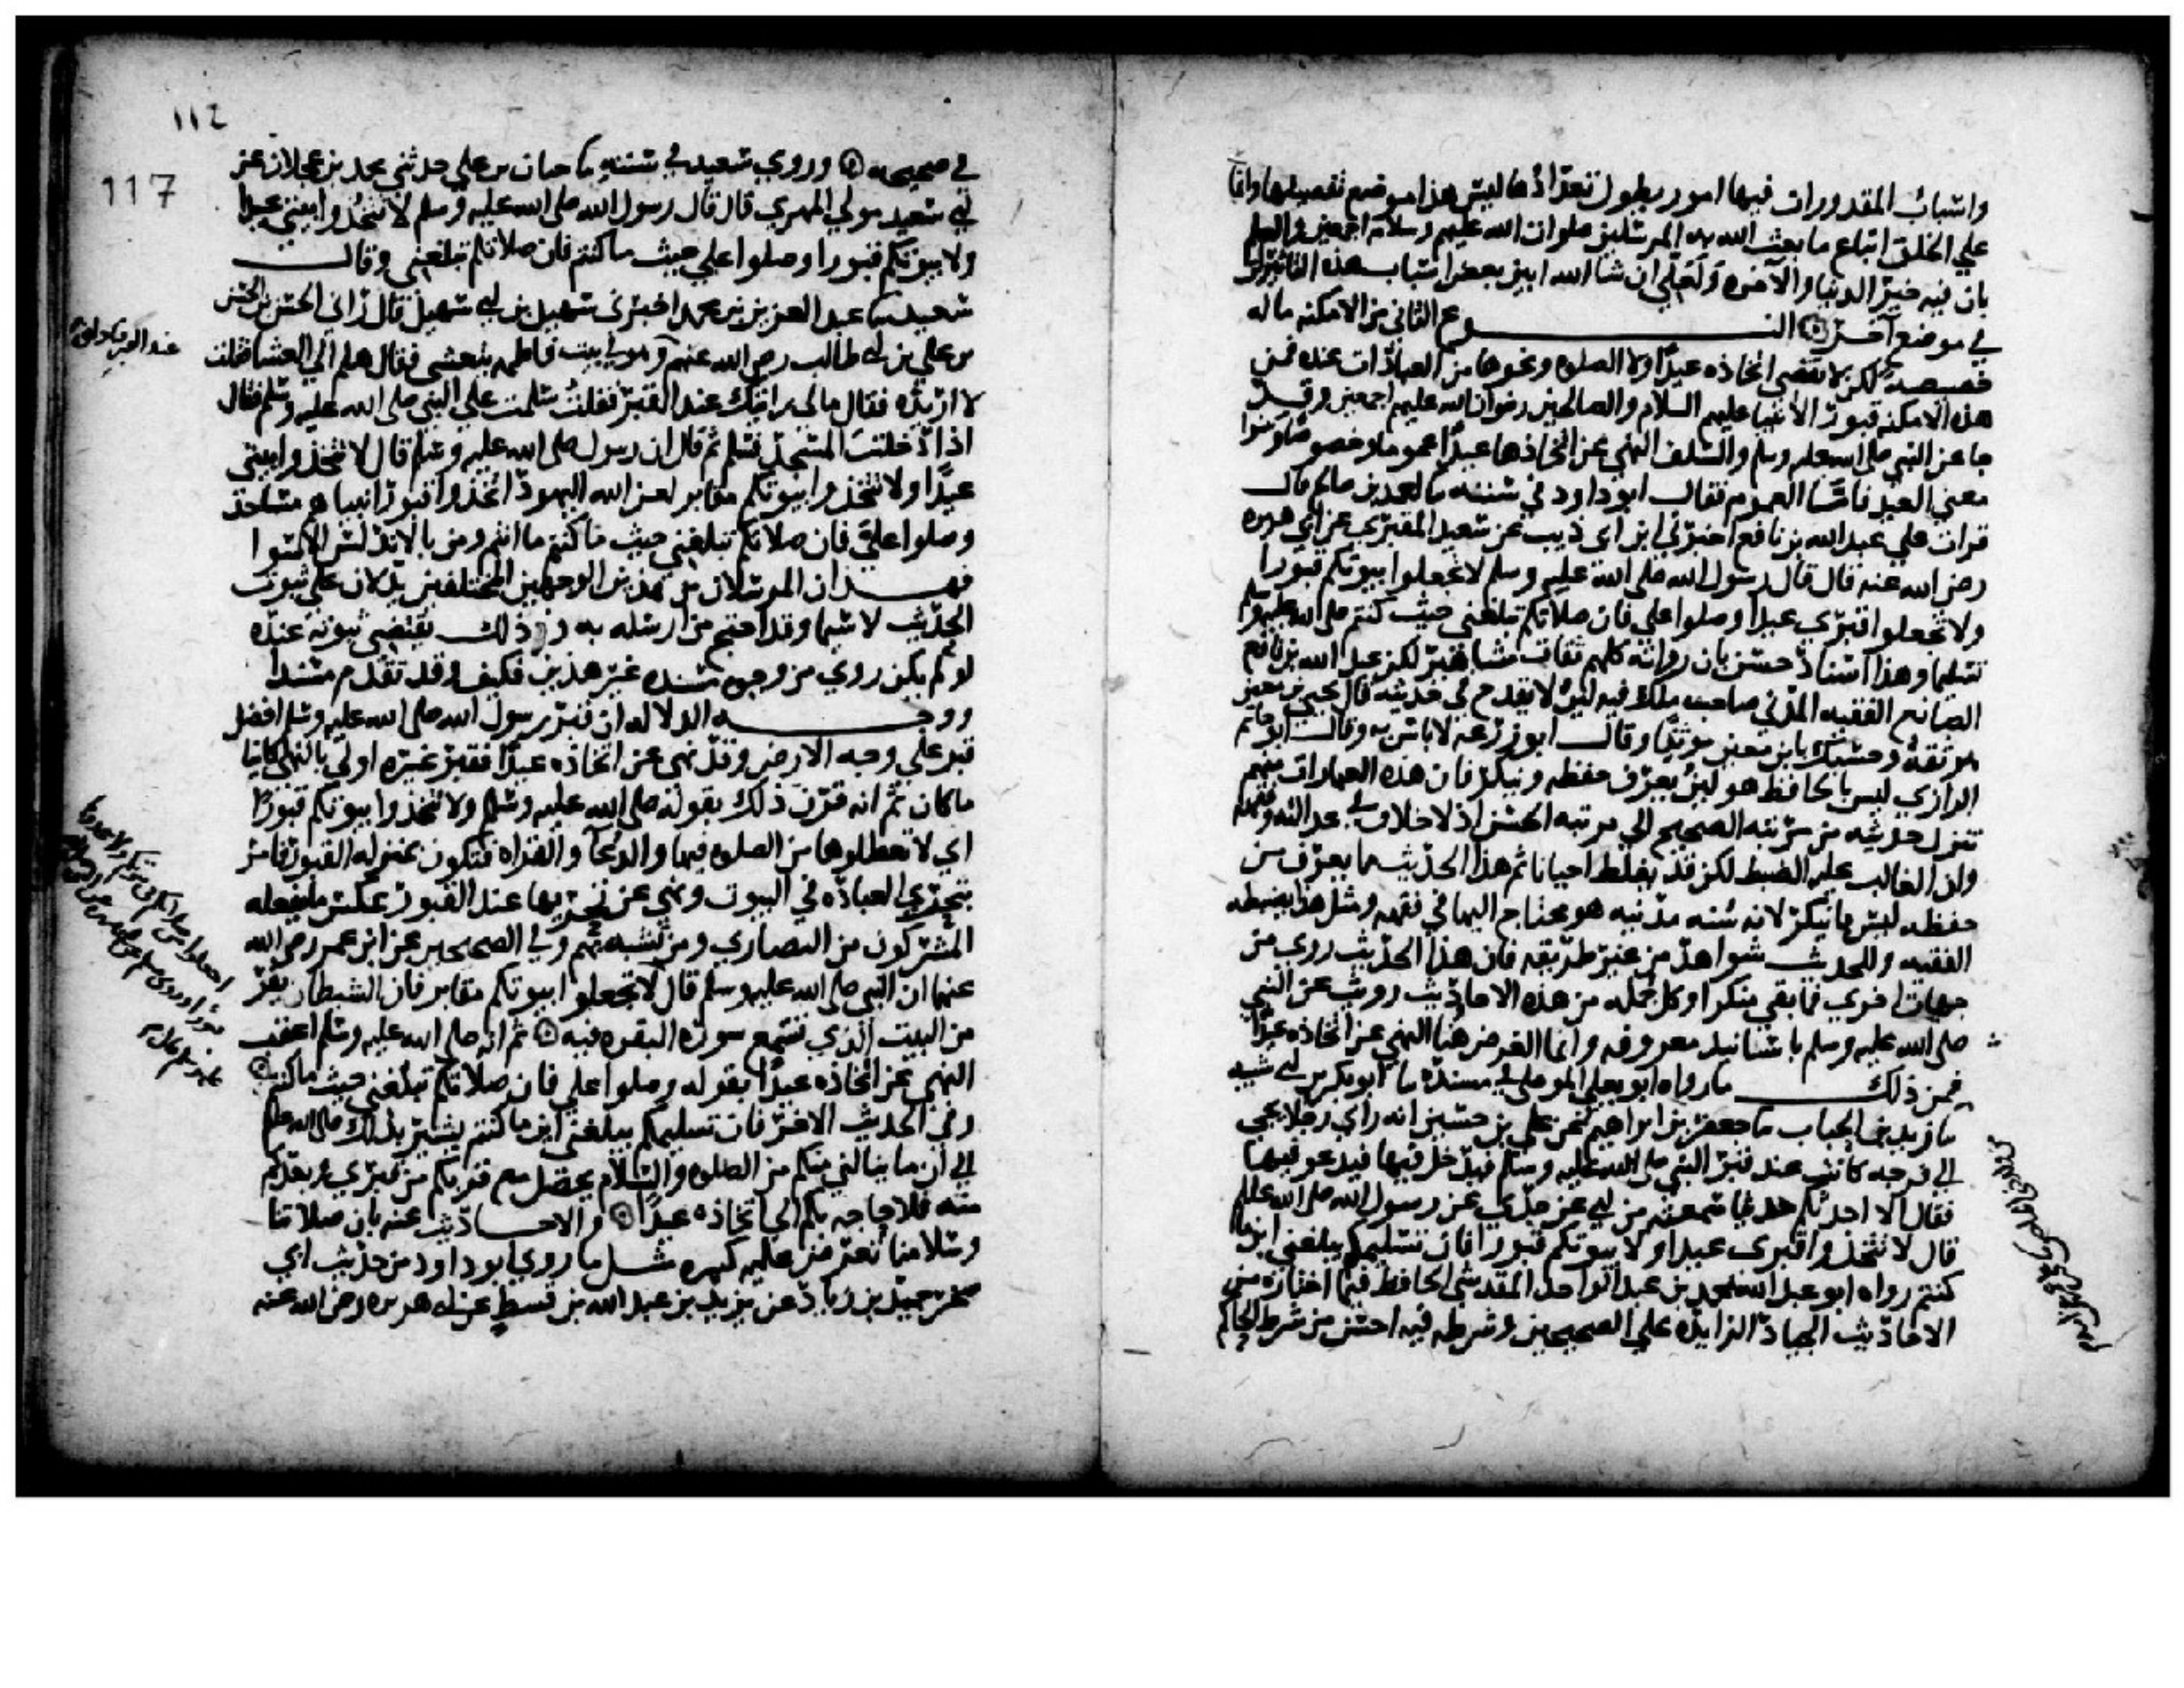 واسباب المقدورات فيها امور يطول تعدادها ليس هذا موضع تفصيلها وانما
علي الخلق اتباع ما بعث الله به المرسلين صلوات الله عليهم وسلامه اجمعين والعلم
بان فيه خير الدنيا والآخره ولعلي ان شا الله ابين بعض اسباب هذه التاثيرات
في موضع آخر ۞ النــوع الثاني من الامكنه ما له
خصيصة لكن لا يقتضي اتخاذه عيدا ولا الصلوه ونحوها من العبادات عنده فمن
هذه الامكنه قبور الانبيا عليهم السلام والصالحين رضوان الله عليهم اجمعين وقد
جا عن النبي صلى الله عليه وسلم والسلف النهي عن اتخاذها عيدا عموما وخصوصا وبينوا
معني العيد فاما العموم فقال ابو داود في سننه ما احمد بن صالح قال
قرات علي عبد الله بن نافع اخبرني ابن ابي ذيب عن سعيد المقبري عن ابي هريره
رضي الله عنه قال قال رسول الله صلى الله عليه وسلم لا تجعلوا بيوتكم قبورا
ولا تجعلوا قبري عيدا وصلوا علي فان صلاتكم تبلغني حيث كنتم صلى الله عليه وسلم
تسليما وهذا اسناد حسن بان رواته كلهم ثقات مشاهير لكن عبد الله بن نافع
الصانع الفقيه المدني صاحب ملك فيه لين لا يقدح في حديثه قال يحيى بن معين
هو ثقة وحسبك بابن معين موثقا وقال ابو زرعه لا باس به وقال ابو حاتم
الرازي ليس بالحافظ هو لين يعرف حفظه وينكر فان هذه العبارات منهم
تنزل حديثه من مرتبه الصحيح الي مرتبه الحسن اذ لا خلاف في عدالته وفقهه
وان الغالب عليه الضبط لكن قد يغلط احيانا ثم هذا الحديث مما يعرف من
حفظه ليس مما ينكر لانه سنه مدنيه هو محتاج اليها في فقهه ومثل هذا يضبطه
الفقيه وللحديث شواهد من غير طريقه فان هذا الحديث روي من
جهات اخري فما بقي منكرا وكل جمله من هذه الاحاديث رويت عن النبي
صلى الله عليه وسلم باسانيد معروفه وانما الغرض هنا النهي عن اتخاذه عيدا
فمن ذلك ما رواه ابو يعلي الموصلي في مسنده ما ابو بكر بن ابي شيبه
ما زيد بن الحباب ما جعفر بن ابراهيم عن علي بن حسين انه راي رجلا يجي
الي فرجه كانت عند قبر النبي صلى الله عليه وسلم فيدخل فيها فيدعو فنهاه
فقال الا احدثكم حديثا سمعته من ابي عن جدي عن رسول الله صلى الله عليه
قال لا تتخذوا قبري عيدا ولا بيوتكم قبورا فان تسليمكم يبلغني اينما
كنتم رواه ابو عبد الله محمد بن عبد الواحد المقدسي الحافظ فيما اختاره من
الاحاديث الجياد الزايده علي الصحيحين وشرطه فيه احسن من شرط الحاكم
١١٢
117
في صحيحه ۞ وروي سعيد في سننه ما حبان بن علي حدثني محمد بن عجلان عن
ابي سعيد مولي المهري قال قال رسول الله صلى الله عليه وسلم لا تتخذوا بيتي عيدا
ولا بيوتكم قبورا وصلوا علي حيث ما كنتم فان صلاتكم تبلغني وقال
سعيد ما عبد العزيز بن محمد اخبرني سهيل بن ابي سهيل قال راني الحسن بن الحسن
بن علي بن ابي طالب رضي الله عنهم وهو في بيت فاطمه يتعشي فقال هلم الي العشا فقلت
لا اريده فقال مالي رايتك عند القبر فقلت سلمت علي النبي صلى الله عليه وسلم فقال
اذا دخلت المسجد فسلم ثم قال ان رسول صلى الله عليه وسلم قال لا تتخذوا بيتي
عيدا ولا تتخذوا بيوتكم مقابر لعن الله اليهود اتخذوا قبور انبياهم مساجد
وصلوا علي فان صلاتكم تبلغني حيث ما كنتم ما انتم ومن بالاندلس الا سوا
فهــذان المرسلان من هذين الوجهين المختلفين يدلان على ثبوت
الحديث لا سيما وقد احتج من ارسله به وذلك يقتضي ثبوته عنده
لو لم يكن روي من وجوه مسنده غير هذين فكيف وقد تقدم مسندا
ووجــه الدلاله ان قبر رسول الله صلى الله عليه وسلم افضل
قبر علي وجه الارض وقد نهي عن اتخاذه عيدا فقبر غيره اولي بالنهي كاينا
ما كان ثم انه قرن ذلك بقوله صلى الله عليه وسلم ولا تتخذوا بيوتكم قبورا
اي لا تعطلوها من الصلوه فيها والدعآ والقراه فتكون بمنزله القبور فامر
بتحري العباده في البيوت ونهي عن تحريها عند القبور عكس ما يفعله
المشركون من النصاري ومن تشبه بهم وفي الصحيحين عن ابن عمر رضي الله
عنهما ان النبي صلى الله عليه وسلم قال لا تجعلوا بيوتكم مقابر فان الشيطان يفر
من البيت الذي تسمع سورة البقره فيه ۞ ثم انه صلى الله عليه وسلم اعقب
النهي عن اتخاذه عيدا بقوله وصلوا علي فان صلاتكم تبلغني حيث ما كنتم
وفي الحديث الاخر فان تسليمكم يبلغني اين ما كنتم يشير بذلك صلى الله عليه
الي ان ما ينالني منكم من الصلوه والسلام يحصل مع قربكم من قبري وبعدكم
منه فلا حاجه بكم الي اتخاذه عيدا ۞ والاحــاديث عنه بان صلاتنا
وسلامنا تعرض عليه كثيره مثــل ما روي ابو داود من حديث ابي
صخر حميد بن زياد عن يزيد بن عبد الله بن قسيط عن ابي هريره رضي الله عنه